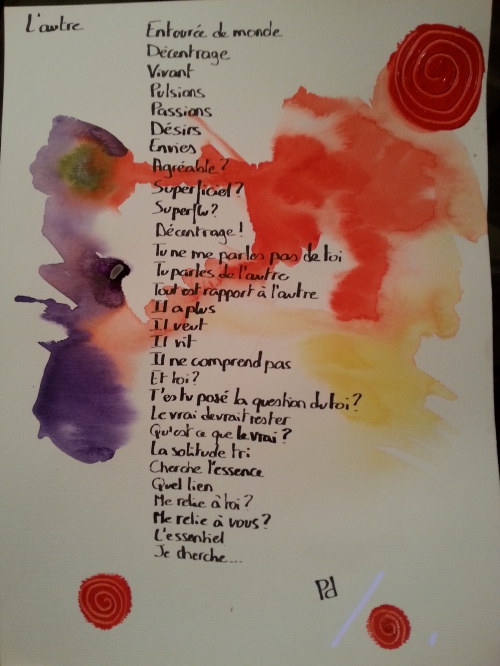 L'autre
Entourée de monde
Décentrage
Vivant
Pulsions
Passions
Désirs
Envies
Agréable ?
Superficiel ?
Superflu ?
Décentrage !
Tu ne me parles pas de toi
Tu parles de l'autre
Tout est rapport à l'autre
Il a plus
Il veut
Il vit
Il ne comprend pas
Et toi ?
T'es tu posé la question du toi ?
Le vrai devrait rester
Qu'est ce que le vrai ?
La solitude tri
Cherche l'essence
Quel lien
Me relie à toi ?
Me relie à vous ?
L'essentiel
Je cherche....
Pd